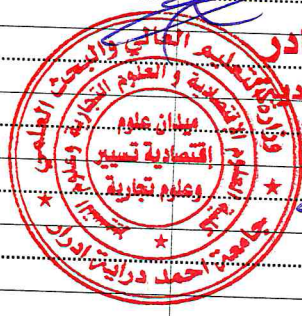 وزارة التعليم العالي والبحث العلمي
جامعة احمد دراية ادرار
كلية العلوم الاقتصادية و العلوم التجارية وعلوم التسيير
ميدان علوم
اقتصادية تسيير
وعلوم تجارية